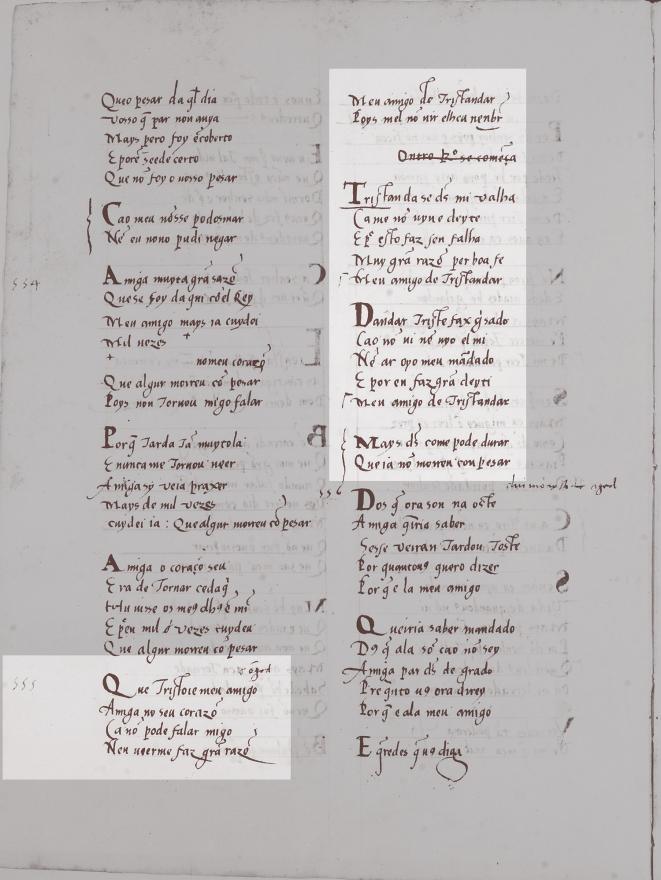 Queo pesar da q̃l dia
vosso q̃ par non auya
Mays pero foy ẽcoberto
E porẽ seede certo
Que nõ foy o uosso pesar
Ca o meu nõsse podesmar
Nẽ eu nono pudi negar
554
Amiga muyta grã sazõ
Quese foy daqui cõ el Rey
Meu amigo mays ia cuydei
Mil vezes +
+ no meu corazõ
Que algur morreu cõ pesar
Poys non Tornou migo falar
Porq̃ Tarda Tã muyto la
E nunca me Tornou ueer
Amiga sy veia prazer
Mays de mil vezes
cuydei ia : Que algur morreu cõ pesar
Amiga o coraçõ seu
Era de Tornar cedaq̃
hu uisse os meꝯ olhꝯ ẽ mi
E pẽu mil vezes cuydeu
Que algur morreu cõ pesar
555
Que Triste oie meu amigo
Amiga no seu corazõ
Ca nõ pode falar migo
Nen ueerme faz grã razõ
Meu amigo de Tristandar
Poys mel nõ uir elheu nenbr
Outro Rº se começa
Tristanda se ds̃ mi valha
Ca me nõ uyu e deyte
E pẽ esto faz sen falha
Muy grã razõ per boa fe
Meu amigo de Tristandar
Dandar Triste fax guisado
Cao nõ ui nẽ uyo el mi
Nẽ ar oyo meu mãdado
E por en faz grã deyti
Meu amigo de Tristandar
Mays ds̃ come pode durar
Que ia nõ morreu con pesar
556
Dos q̃ ora son na oste
Amiga q̃rria saber
Sesse verran Tardou Toste
Por quantouꝯ quero dizer
Por q̃ e la meu amigo
Queiria saber mandado
Dꝯ q̃ ala sõ ca o nõ sey
Amiga par ds̃ de grado
Pregũto uꝯ ora direy
Por q̃ e ala meu amigo
E q̃redes q̃ uꝯ diga